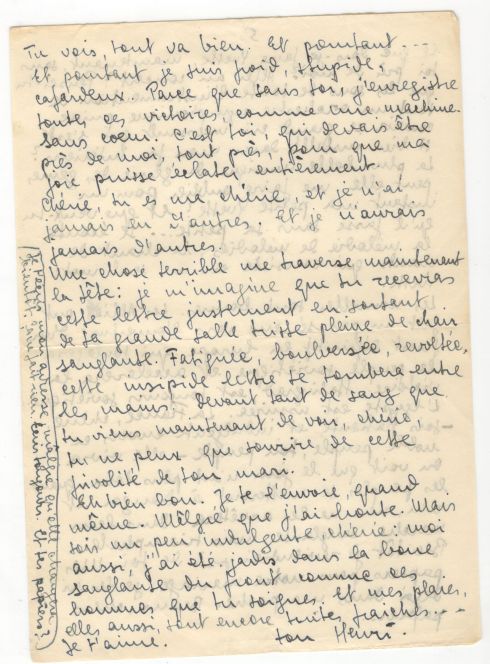 Tu vois, tout va bien. Et pourtant....
Et pourtant je suis froid, stupide,
cafardeux. Parce que sans toi, j'enregistre
toutes ces victoires comme une machine
sans coeur. C'est toi, qui devais être
près de moi, tout près, pour que ma
joie puisse éclater entièrement
Chérie, tu es ma chérie, et je n'ai
jamais eu d'autres. Et je n'aurais
jamais d'autres.
Une chose terrible me traverse maintenant
la tête: je m'imagine que tu recevras
cette lettre justement en sortant
de ta grande salle triste pleine de chair
sanglante. Fatiguée, boulversée, revoltée,
cette insipide lettre te tombera entre
les mains. Devant tant de sang que
tu viens maintenant de voir, chérie,
tu ne peux que sourire de cette
frivolité de ton mari.
Eh bien bon. Je te l'envoie, quand
même. Malgré que j'ai honte. Mais
sois un peu indulgente, chérie: moi
aussi, j'ai été jadis dans la boue
sanglante du front comme ces
hommes que tu soignes, et mes plaies,
elles aussi, sont encore toutes fraîches....
Je t'aime. ton Henri.
mon adresse, malgré qu'elle changera
bientôt. Ça ne fait rien. Et tes papiers?